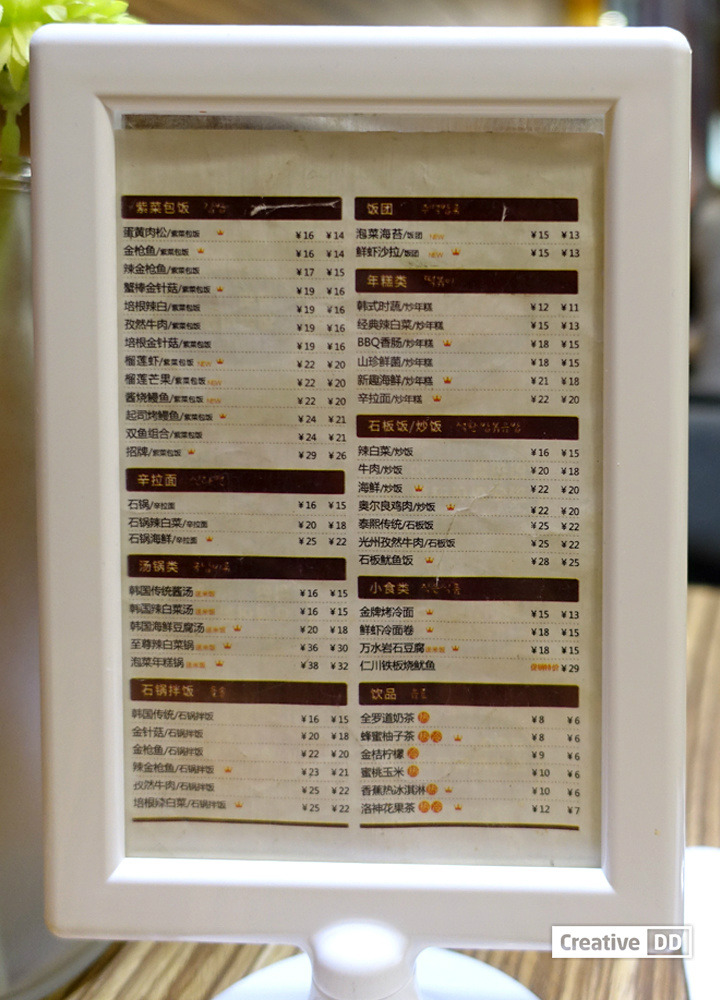 紫菜包饭
蛋黄肉松/紫菜包饭 ¥16 ¥14
金枪鱼/紫菜包饭 ¥16 ¥14
辣金枪鱼/紫菜包饭 ¥17 ¥15
蟹棒金针菇/紫菜包饭 ¥19 ¥16
培根辣白/紫菜包饭 ¥19 ¥16
孜然牛肉/紫菜包饭 ¥19 ¥16
培根金针菇/紫菜包饭 ¥19 ¥16
榴莲虾/紫菜包饭 NEW ¥22 ¥20
榴莲芒果/紫菜包饭 NEW ¥22 ¥20
酱烧鳗鱼/紫菜包饭 NEW ¥22 ¥20
起司烤鳗鱼/紫菜包饭 ¥24 ¥21
双鱼组合/紫菜包饭 ¥24 ¥21
招牌/紫菜包饭 ¥29 ¥26
辛拉面
石锅/辛拉面 ¥16 ¥15
石锅辣白菜/辛拉面 ¥20 ¥18
石锅海鲜/辛拉面 ¥25 ¥22
汤锅类
韩国传统酱汤 送米饭 ¥16 ¥15
韩国辣白菜汤 送米饭 ¥16 ¥15
韩国海鲜豆腐汤 送米饭 ¥20 ¥18
至尊辣白菜锅 送米饭 ¥36 ¥30
泡菜年糕锅 送米饭 ¥38 ¥32
石锅拌饭
韩国传统/石锅拌饭 ¥16 ¥15
金针菇/石锅拌饭 ¥20 ¥18
金枪鱼/石锅拌饭 ¥22 ¥20
辣金枪鱼/石锅拌饭 ¥23 ¥21
孜然牛肉/石锅拌饭 ¥25 ¥22
培根辣白菜/石锅拌饭 ¥25 ¥22
饭团
泡菜海苔/饭团 NEW ¥15 ¥13
鲜虾沙拉/饭团 NEW ¥15 ¥13
年糕类
韩式时蔬/炒年糕 ¥12 ¥11
经典辣白菜/炒年糕 ¥15 ¥13
BBQ香肠/炒年糕 ¥18 ¥15
山珍鲜菌/炒年糕 ¥18 ¥15
新趣海鲜/炒年糕 ¥21 ¥18
辛拉面/炒年糕 ¥22 ¥20
石板饭/炒饭
辣白菜/炒饭 ¥16 ¥15
牛肉/炒饭 ¥20 ¥18
海鲜/炒饭 ¥22 ¥20
奥尔良鸡肉/炒饭 ¥22 ¥20
泰熙传统/石板饭 ¥25 ¥22
光州孜然牛肉/石板饭 ¥25 ¥22
石板鱿鱼饭 ¥28 ¥25
小食类
金牌烤冷面 ¥15 ¥13
鲜虾冷面卷 ¥18 ¥15
万水岩石豆腐 送米饭 ¥18 ¥15
仁川铁板烧鱿鱼 促销特价 ¥29
饮品
全罗道奶茶 热 ¥8 ¥6
蜂蜜柚子茶 热 冷 ¥8 ¥6
金桔柠檬 ¥9 ¥6
蜜桃玉米 ¥10 ¥6
香蕉热冰淇淋 ¥10 ¥6
洛神花果茶 热 冷 ¥12 ¥7
Creative DD